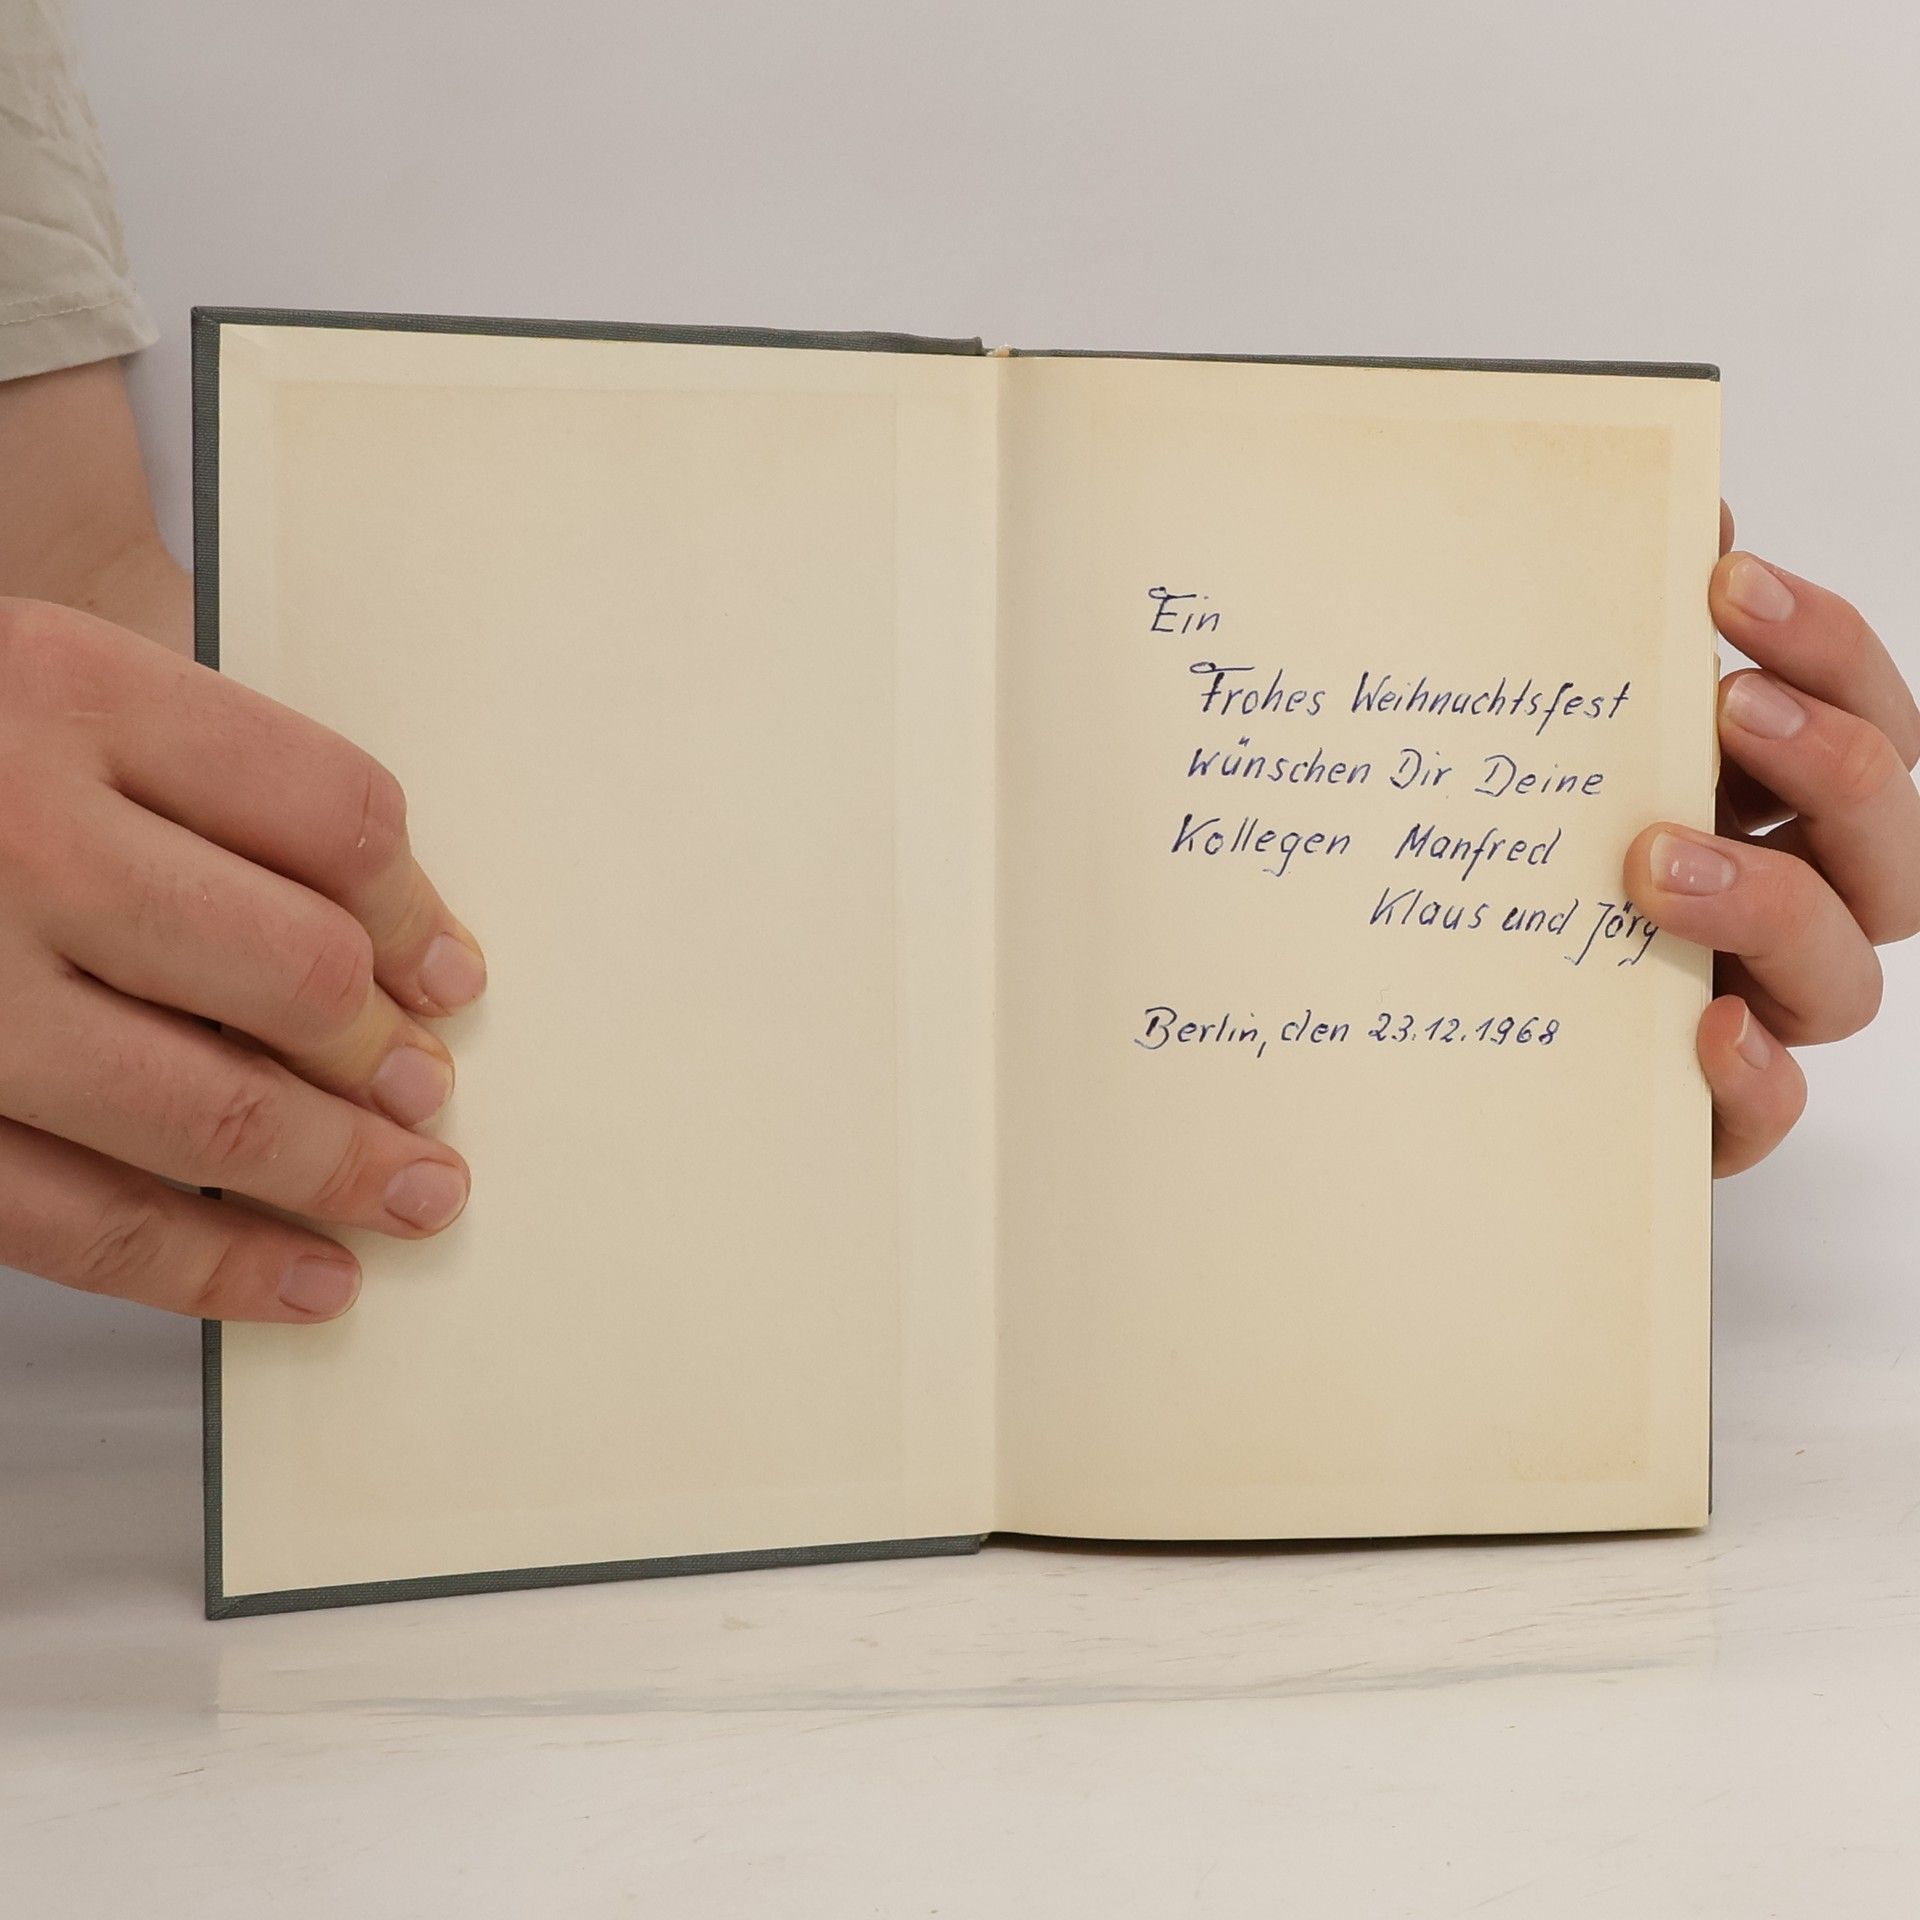 Ein
Frohes Weihnachtsfest
wünschen Dir Deine
Kollegen Manfred
Klaus und Jörg
Berlin, den 23.12.1968